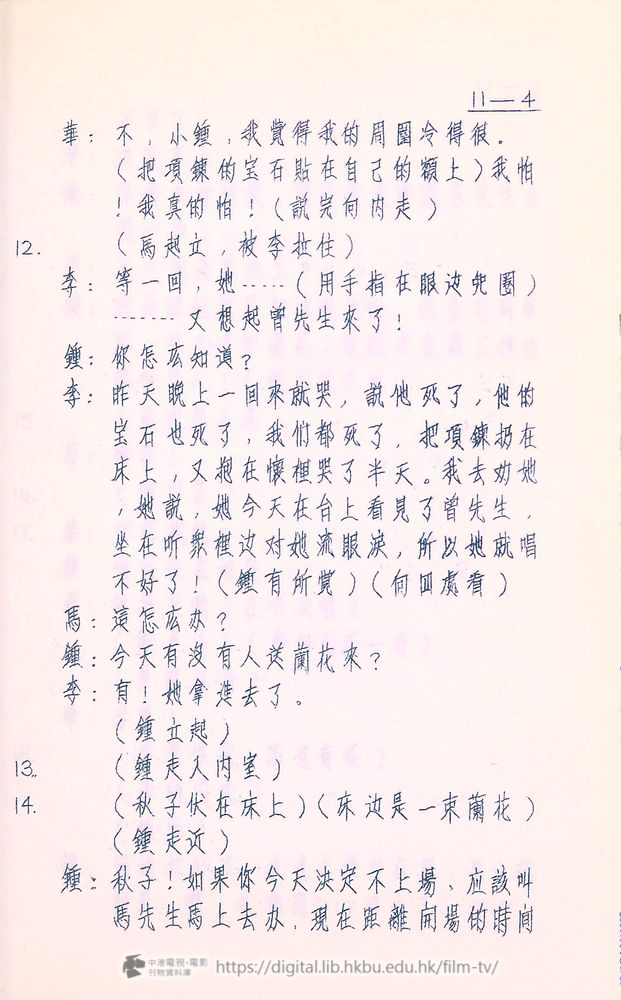 11—4
華：不，小鍾，我覺得我的周圍冷得很。
（把項鍊的宝石貼在自己的額上）我怕
！我真的怕！（説完向内走）
12.（馬起立，被李拉住）
李：等一回，她……（用手指在眼边兜圈）
……又想起曾先生來了！
鍾：你怎么知道？
李：昨天晚上一回來就哭，説他死了，他的
宝石也死了，我们都死了，把項鍊扔在
床上，又抱在懷裡哭了半天。我去劝她
，她説，她今天在台上看見了曾先生，
坐在听衆裡边对她流眼淚，所以她就唱
不好了！（鍾有所覚）（向四處看）
馬：這怎么办？
鍾：今天有沒有人送蘭花來？
李：有！她拿進去了。
（鍾立起）
13.（鍾走入内室）
14.（秋子伏在床上）（床边是一束蘭花）
（鍾走近）
鍾：秋子！如果你今天決定不上場、应該叫
馬先生馬上去办，現在距離開場的時间
中港電視・電影
刊物資料庫
https://digital.lib.hkbu.edu.hk/film-tv/